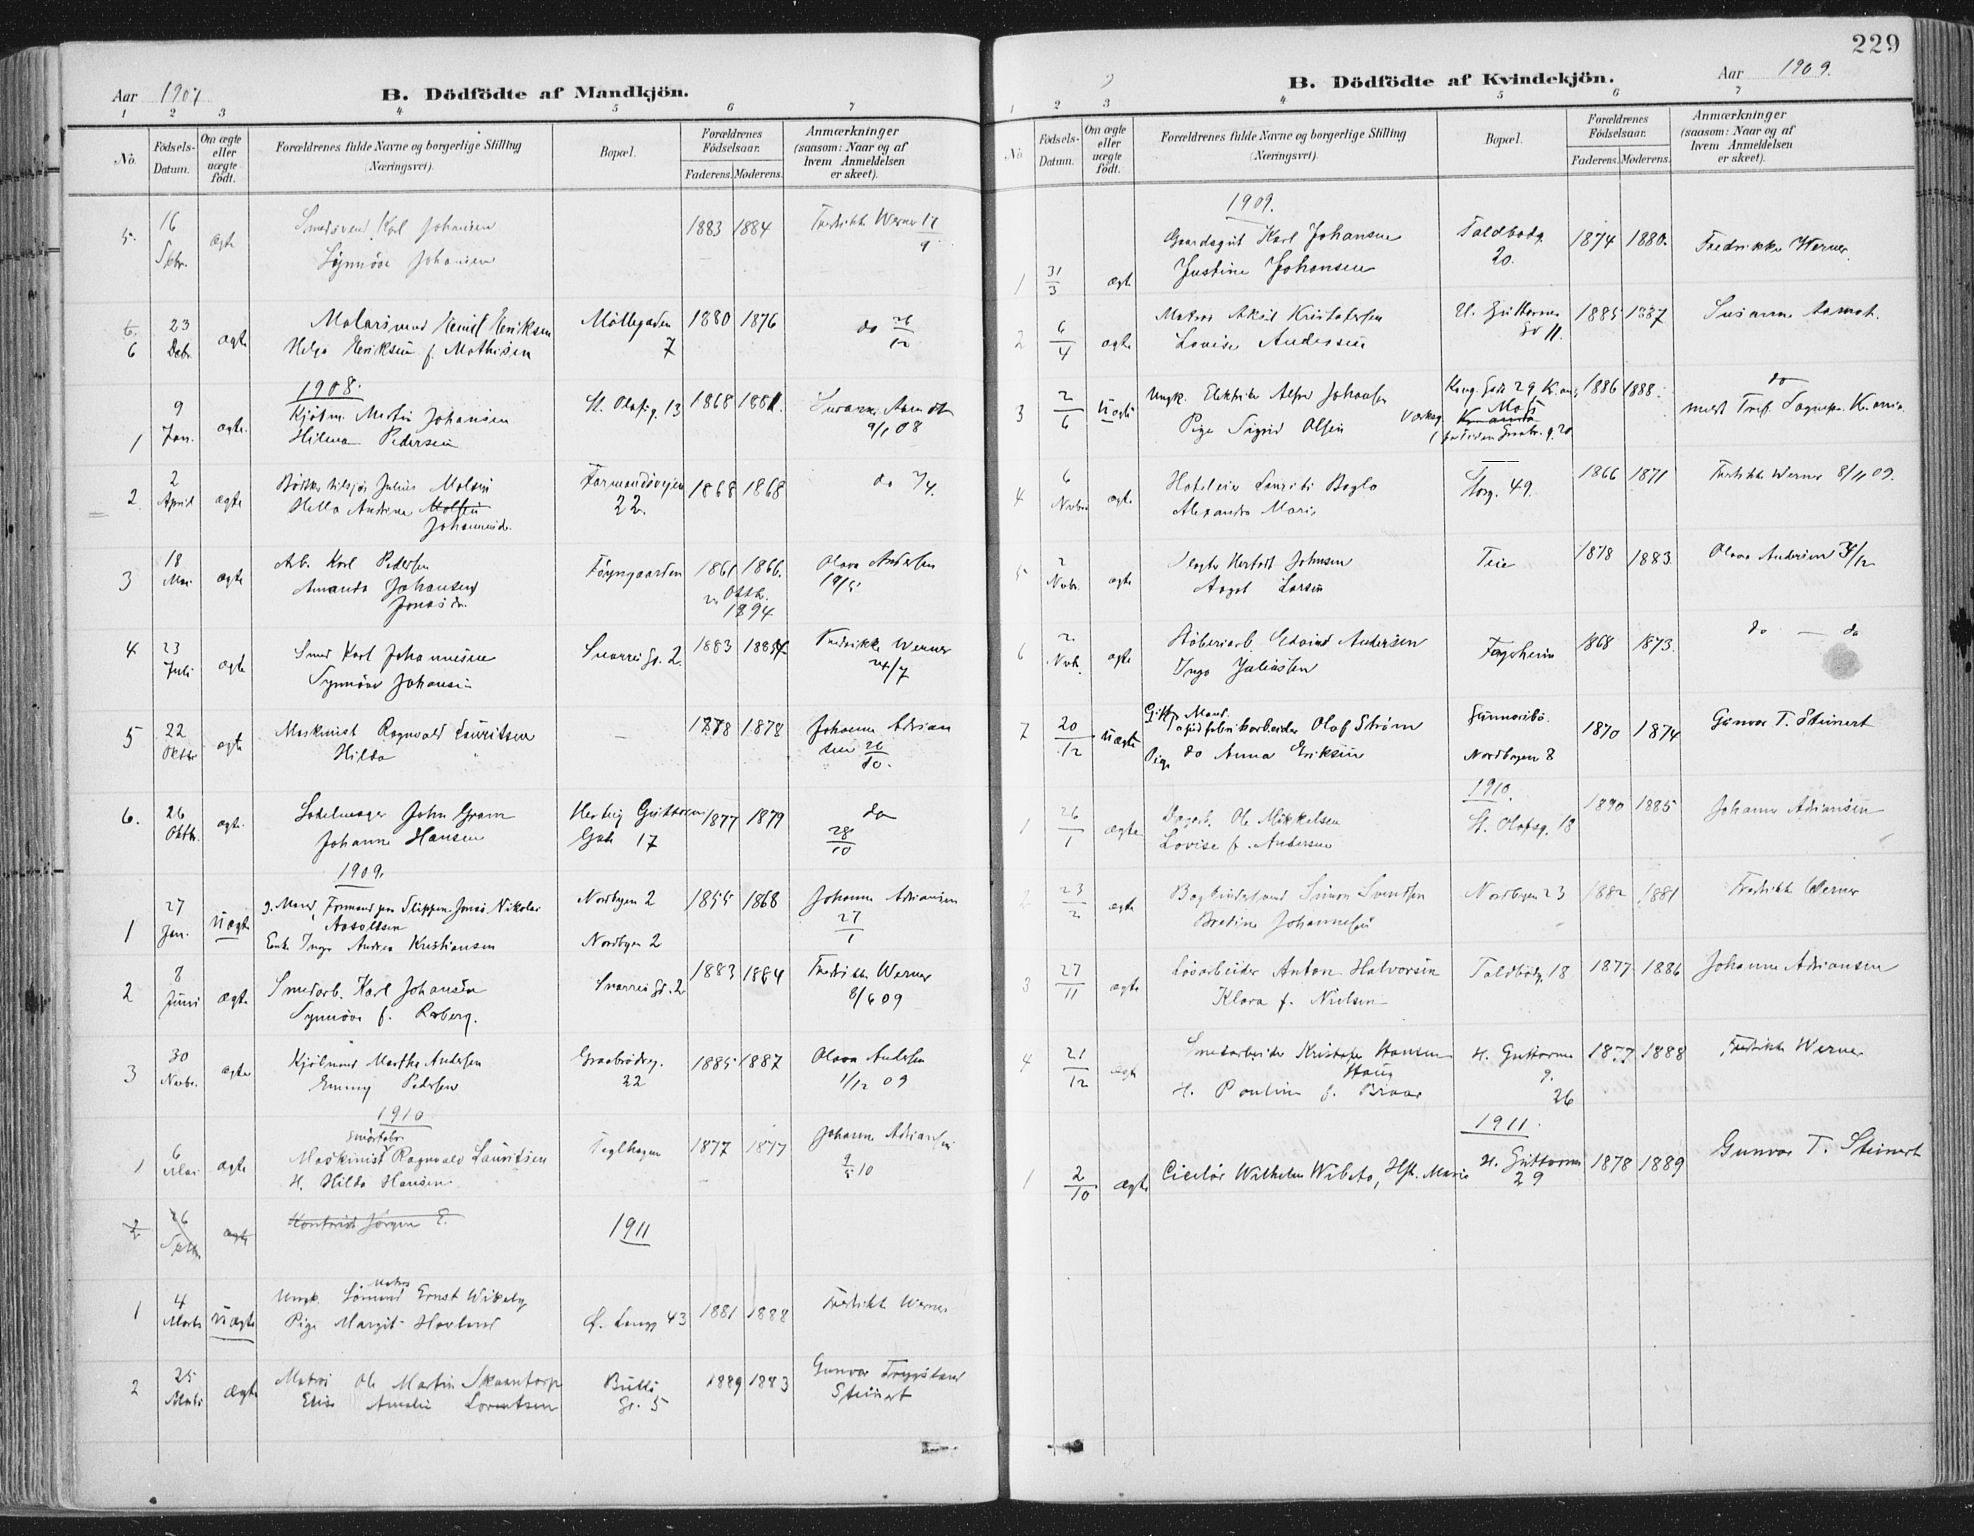 229
Aar 1907
B. Dödfödte af Mandkjön.
1 2 3 4 5 6 7
No.
Födsels-Datum.
Om ægte eller uægte födt.
Forældrenes fulde Navne og borgerlige Stilling (Næringsvei).
Bopæl.
Forældrenes Födselsaar.
Faderens. Moderens.
Anmærkninger (saasom: Naar og af hvem Anmeldelsen er skeet).
5. 16 Sptbr. ægte Smedsvend Karl Johansen 1883 1884 Fredrikke Werner 17/9
Synnöve Johansen
6. 23 Malersvend Henrik Eriksen Möllegaden 1880 1876 do 26/12
6 Debr. ægte Helga Eriksen f. Mathisen 7
1908.
1 9 Jan. ægte. Kjölm. Martin Johansen St. Olafsg. 13 1868 1881. Susanne Aamodt
Hilma Pedersen 9/1 08
2 2 April ægte Julius Molsen Farmandsveien 1868 1868 do 7/4.
Hella Andrine Molsen 22.
Johannesdr.
3 18 Mai ægte Arb. Karl Pedersen Föyngaarden 1861 1866. Olava Andersen
Amanda Johansen 19/5
Jonasdr. Oktbr. 1894
4 23 Juli ægte Smed Karl Johannesen Snorresgd. 2. 1883 1884 Fredrikke Werner
Synnöve Johansen 24/7
5 22 Oktbr ægte Maskinist Ragnvald Lauritsen — 1878 1878 Johanne Adriansen 26/10.
Hilda "
6. 26 Oktbr. ægte. Sadelmager John Gram Hertug Guttorms 1877 1879 do
Johanne Hansen Gade 17 28/10
1909.
1 27 Jan. uægte g. Mand, Formand paa Slippen Jonas Nikolai Nordbyen 2 1855 1868 Johanne Adriansen
Aasoldsen 27/1
Enke Inga Andrea Kristiansen Nordbyen 2
2 8 Juni ægte Smedarb. Karl Johansen Snorresgd. 2 1883 1884 Fredrikke Werner
Synnöve f. Roberg. 8/6 09
3 30 Novbr. ægte Kjölmand Marthin Andersen Graabrödreg. 1885 1887 Olava Andersen
Emmy Pedersen 22 1/12 09
1910
1 6 Mai ægte Maskinist Ragnvald Lauritsen Teglhagen 1877 1877 Johanne Adriansen
H. Hilda Hansen 9/5 10
2 26 Sptbr. ægte Kontorist Jörgen E.
1911
1 4 Marts uægte Ungk. Matros Ernst Wikeby Ö. Langg 43 1881 1888 Fredrikke Werner
Pige Margit Hovland
2 25 Marts ægte Matros Ole Martin Skaantorp Bulls 1889 1883 Gunvor Trygsland
Elise Amalie Lorentsen Gd. 5 Steinert
B. Dödfödte af Kvindekjön.
Aar 1909.
1 2 3 4 5 6 7
No
Födsels-Datum.
Om ægte eller uægte födt.
Forældrenes fulde Navne og borgerlige Stilling (Næringsvei).
Bopæl.
Forældrenes Födselsaar.
Faderens. Moderens.
Anmærkninger (saasom: Naar og af hvem Anmeldelsen er skeet).
1909.
1 31/3 ægte Gaardsgut Karl Johansen Toldbodg. 1874 1880. Fredrikke Werner.
Justine Johansen 20.
2 6/4 ægte Matros Aksel Kristofersen H. Guttorms 1885 1887 Susanne Aamot.
Lovise Andersen Gd 11.
3 2/6 uægte Ungk. Elektriker Alfred Johansen Kong. Gade 29, K.ania 1886 1888. do
Pige Sigrid Olsen Moss
K.ania.
4 6 Novbr ægte Hoteleier Lauritz Boglo Storg. 49. 1866 1871 Fredrikke Werner 8/11 09.
Alexandra Marie
5 2 Novbr. ægte Herlof Johnsen Teie 1878 1883. Olava Andersen 3/12
Aagot Larsen
6 2. Novb. ægte Støberiarb. Edvind Andersen Fagerheim 1868 1873. do — do
Inga Juliussen
7 20/12 uægte Gift Mand. Olaf Ström Gunnarsbö. 1870 1874 Gunvor T. Steinert
Pige do Anna Eriksen Nordbyen 8
1910.
1 26/1 ægte Dagarb. Ole Mikkelsen St. Olafsg. 18 1890 1885 Johanne Adriansen
Lovise f. Andersen
2 23/2 ægte Bogbindersvend Simon Svendsen Nordbyen 23 1882 1881 Fredrikke Werner
Bretine Johannesen
3 27/11 ægte Løsarbeider Anton Halvorsen Toldbodg. 18 1877 1886 Johanne Adriansen
Klara f. Nielsen
4 21/12 ægte Smedarbeider Kristofer Hansen H. Guttorms 1877 1888 Fredrikke Werner
Haug g.
H. Pauline f. Braar 26
1911.
1 2/10 ægte Ciselør Wilhelm Wibeto, Hst. Marie H. Guttorms 1878 1889 Gunvor T. Steinert
29